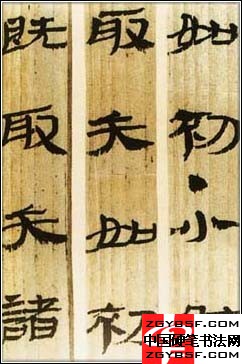 如初·小
取矢如初
既取矢諸
ZGYBSF.COM
中国硬笔书法网
ZGYBSF.COM